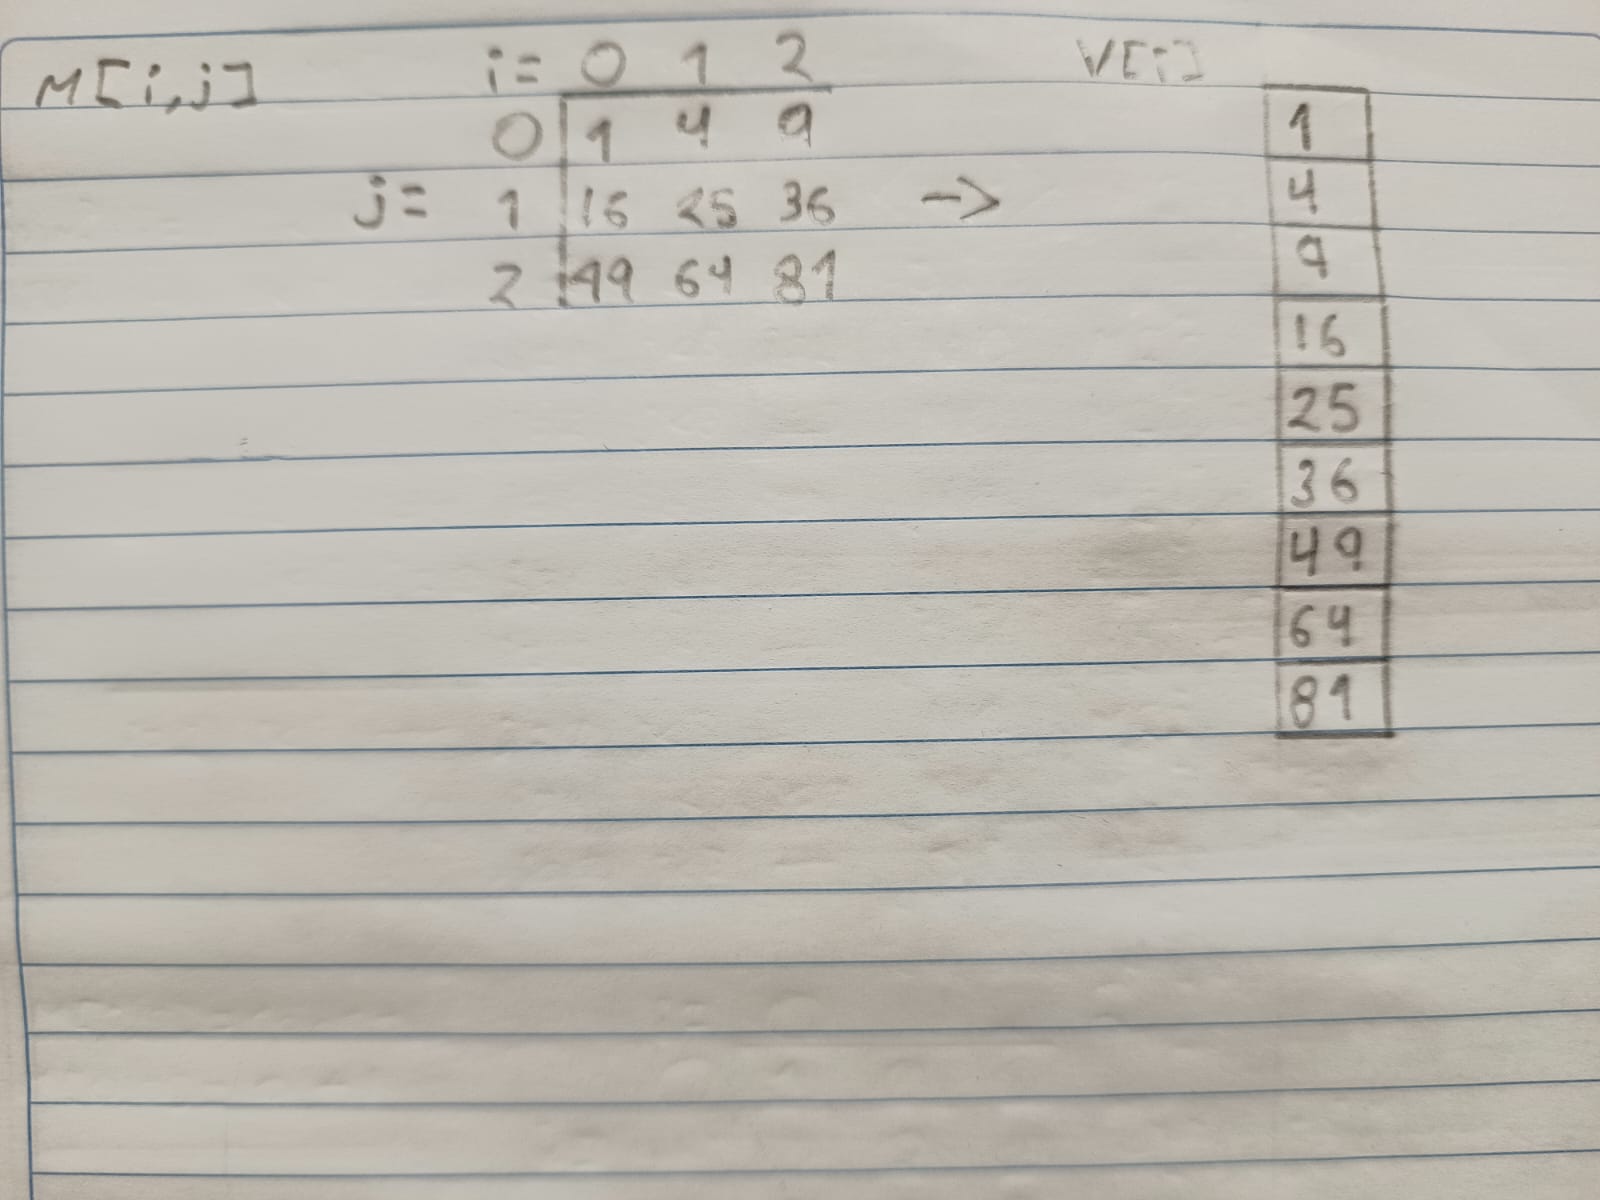 M[i,j] i= 0 1 2 V[i]
0 1 4 9
j= 1 16 25 36 ->
2 49 64 81
1
4
9
16
25
36
49
64
81